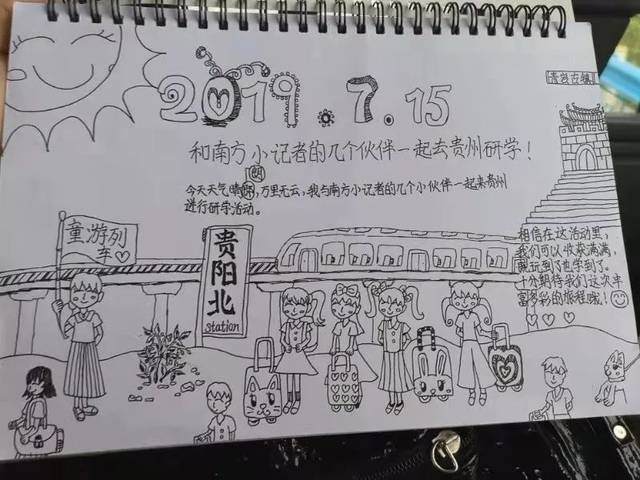 2019.7.15
青岩古镇
和南方小记者的几个伙伴一起去贵州研学！
今天天气晴朗，万里无云，我与南方小记者的几个小伙伴一起来贵州
进行研学活动。
童游列
车
贵阳北
station
相信在这活动里，
我们可以收获满满，
既玩到了也学到了。
十分期待我们这次丰
富多彩的旅程哦！